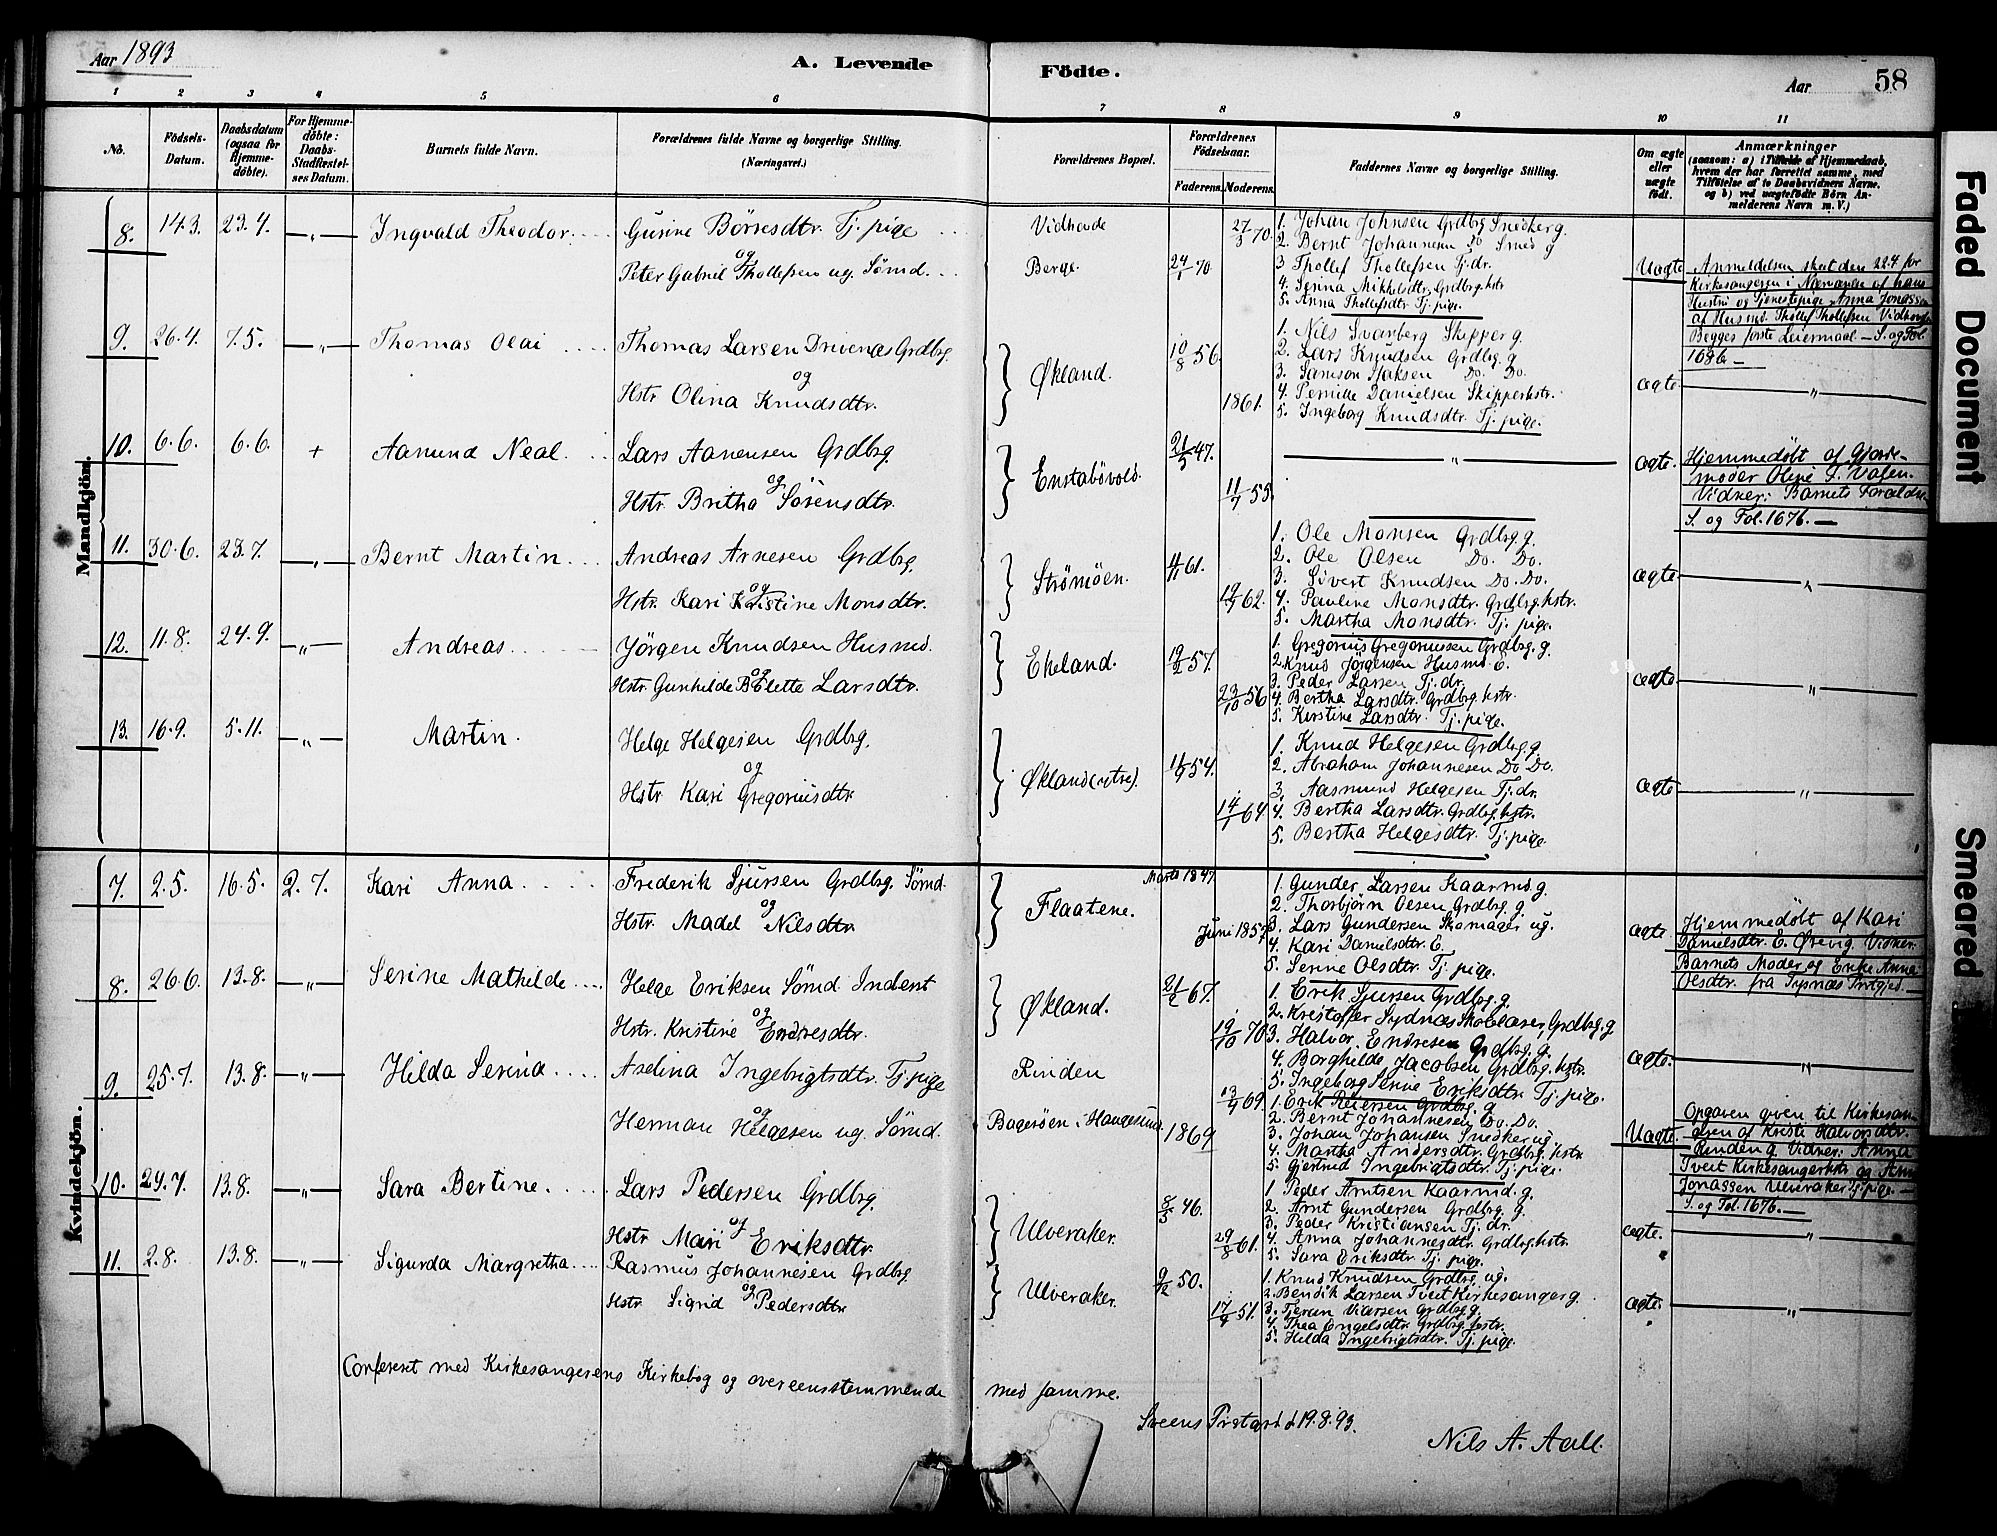 Aar 1893
A. Levende Födte.
Aar 58
1 2 3 4 5 6 7 8 9 10 11
No.
Födsels-Datum.
Daabsdatum (ogsaa for Hjemme-döbte).
For Hjemme-döbte: Daabs-Stadfæstel-ses Datum.
Barnets fulde Navn.
Forældrenes fulde Navne og borgerlige Stilling. (Næringsvei.)
Forældrenes Bopæl.
Forældrenes Födselsaar.
Faderens. Moderens.
Faddernes Navne og borgerlige Stilling.
Om ægte eller uægte födt.
Anmærkninger
(saasom: a) i Tilfælde af Hjemmedaab,
hvem der har forrettet samme, med
Tilföielse af to Daabsvidners Navne,
og b) ved uægtefödte Börn An-
melderens Navn m. V.)
Mandkjön.
8. 14.3. 23.4. —„— Ingvald Theodor
Gurine Börresdtr. Tj. pige
og
Peter Gabriel Thollefsen ug. Sømd.
Vidhovde
Berge.
24/1 70
27/3 70.
1. Johan Johnsen Grdbrg Snedker g.
2. Bernt Johannesen Do Smed g
3 Thollef Thollefsen Tj. dr.
4. Serina Mikkelsdtr. Grdbrg.hstr
5. Anna Thollefsdtr Tj. pige.
Uægte
Anmeldelsen skeet den 22.4 for
Kirkesangeren i Nærværelse af hans
Hustru og Tjenestepige Anna Jonassen
af Husmd. Thollef Thollefsen Vidhovde
Begges første Leiermaal — S. og Fol.
1686 —
9. 26.4. 7.5. —„— Thomas Olai
Thomas Larsen Drivenæs Grdbrg.
og
Hstr Olina Knudsdtr.
Økland.
10/8 56.
1861.
1. Nils Svanberg Skipper g.
2. Lars Knudsen Grdbrg. g
3. Samson Isaksen Do. Do.
4. Pernille Danielsen Skipperhstr.
5. Ingeborg Knudsdtr. Tj. pige.
ægte „
10. 6.6. 6.6. + Aamund Neal.
Lars Aanensen Grdbrg.
og
Hstr. Britha Sørensdtr.
Enstabövold.
21/5 47.
11/7 55.
„
ægte.
Hjemmedøbt af Gjorde-
moder Oline S. Valen.
Vidner: Barnets Forældre.
S. og Fol. 1676. —
11. 30.6. 23.7. —„— Bernt Martin
Andreas Arnesen Grdbrg.
og
Hstr. Kari Kristine Monsdtr.
Strömöen.
61.
62.
1. Ole Monsen Grdbrg. g.
2. Ole Olsen Do. Do.
3. Sivert Knudsen Do. Do.
4. Pauline Monsdtr. Grdbrg.hstr.
5. Martha Monsdtr. Tj. pige.
ægte „
12. 11.8. 24.9. —„— Andreas
Jörgen Knudsen Husmd.
og
Hstr. Gunhilde B. Elette Larsdtr.
Ekeland.
19/2 57.
23/10 56
1. Gregorius Gregoriussen Grdbrg. g.
2. Knud Jörgensen Husmd. E.
3. Peder Larsen Tj. dr.
4. Bertha Larsdtr. Grdbrg hstr.
5. Kirstine Larsdtr. Tj. pige.
ægte „
13. 16.9. 5.11. —„— Martin.
Helge Helgesen Grdbrg.
og
Hstr Kari Gregoriusdtr
Økland (ytre).
11/9 54.
14/1 64.
1. Knud Helgesen Grdbrg. g.
2. Abraham Johannesen Do. Do.
3. Aasmund Helgesen Tj. dr.
4. Bertha Larsdtr. Grdbrg.hstr.
5. Bertha Helgesdtr. Tj. pige.
ægte „
Kvindekjön.
7. 2.5. 16.5. 2.7. Kari Anna
Frederik Sjursen Grdbrg. Sømd.
og
Hstr. Madel Nilsdtr.
Flaatene.
Marts 1847
Juni 1857
1. Gunder Larsen Kaarmd. g.
2. Thorbjörn Olsen Grdbrg. g
3. Lars Gundersen Skomager ug.
4. Kari Danielsdtr. E.
5. Serine Olsdtr. Tj. pige.
ægte
Hjemmedöbt af Kari
Danielsdtr. E. Ørevig. Vidner:
Barnets Moder og Enke Anna
Olsdtr. fra Tysnæs Prstgjed. —
8. 26.6. 13.8. —„— Serine Mathilde
Helge Eriksen Sømd. Inderst
og
Hstr. Kristine Endresdtr.
Økland.
21/2 67.
19/10 70
1. Erik Sjursen Grdbrg. g.
2. Kristoffer Sydnæs Grdbrg. g
3. Halvor Endresen Grdbrg. g.
4. Borghilde Jacobsen Grdbrg.hstr.
5. Ingeborg Serine Eriksdtr Tj. pige.
ægte. „
9. 25.7. 13.8. —„— Hilda Serina
Axelina Ingebrigtsdtr. Tj. pige
og
Herman Helgesen ug. Sømd.
Rinden
Bagerøen i Haugesund
1869
13/9 69
1. Erik Reiersen Grdbrg. g
2. Bernt Johannesen Do. Do.
3. Johan Johansen Snedker ug.
4. Martha Andersdtr. Grdbrg.hstr
5. Gjertrud Ingebrigtsdtr. Tj. pige.
Uægte.
Opgaven given til Kirkesan-
geren af Kristi Halvorsdtr.
Rinden g. Vidner: Anna
Tveit Kirkesangerhstr og Anna
Jonassen Ulveraker Tj. pige. —
S. og Fol. 1676. —
10. 29.7. 13.8. —„— Sara Bertine.
Lars Pedersen Grdbrg.
og
Hstr Mari Eriksdtr.
Ulveraker.
8/5 46.
29/8 61.
1 Peder Arntsen Kaarmd. g.
2. Arnt Gundersen Grdbrg. g
3. Peder Kristiansen Tj. dr.
4. Anna Johannesdtr. Grdbrg.hstr.
5. Sara Eriksdtr. Tj. pige.
ægte. „
11. 2.8. 13.8. —„— Sigurda Margretha
Rasmus Johannesen Grdbrg
og
Hstr Sigrid Pedersdtr.
Ulveraker.
9/12 50.
17/4 51.
1. Knud Knudsen Grdbrg. ug.
2. Bendik Larsen Tveit Kirkesanger g.
3. Grdbrg. g.
4. Thea Engelsdtr. Grdbrg. hstr.
5. Hilda Ingebrigtsdtr. Tj. pige.
ægte. „
Confereret med Kirkesangerens Kirkebog og overeensstemmende med samme.
Sveens Prstgaard d 19.8.93.
Nils A. Aall.
Faded Document
Smeared